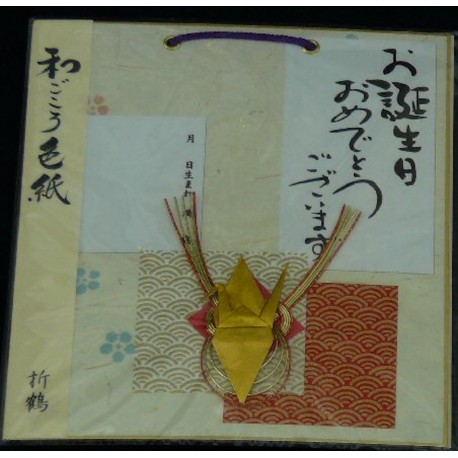 お誕生日
おめでとう
ございます
月　日生まれ
和ごころ色紙
折鶴